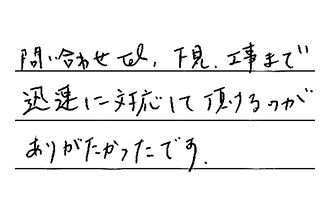 問い合わせtel，下見．工事まで
迅速に対応して頂けるのが
ありがたかったです．